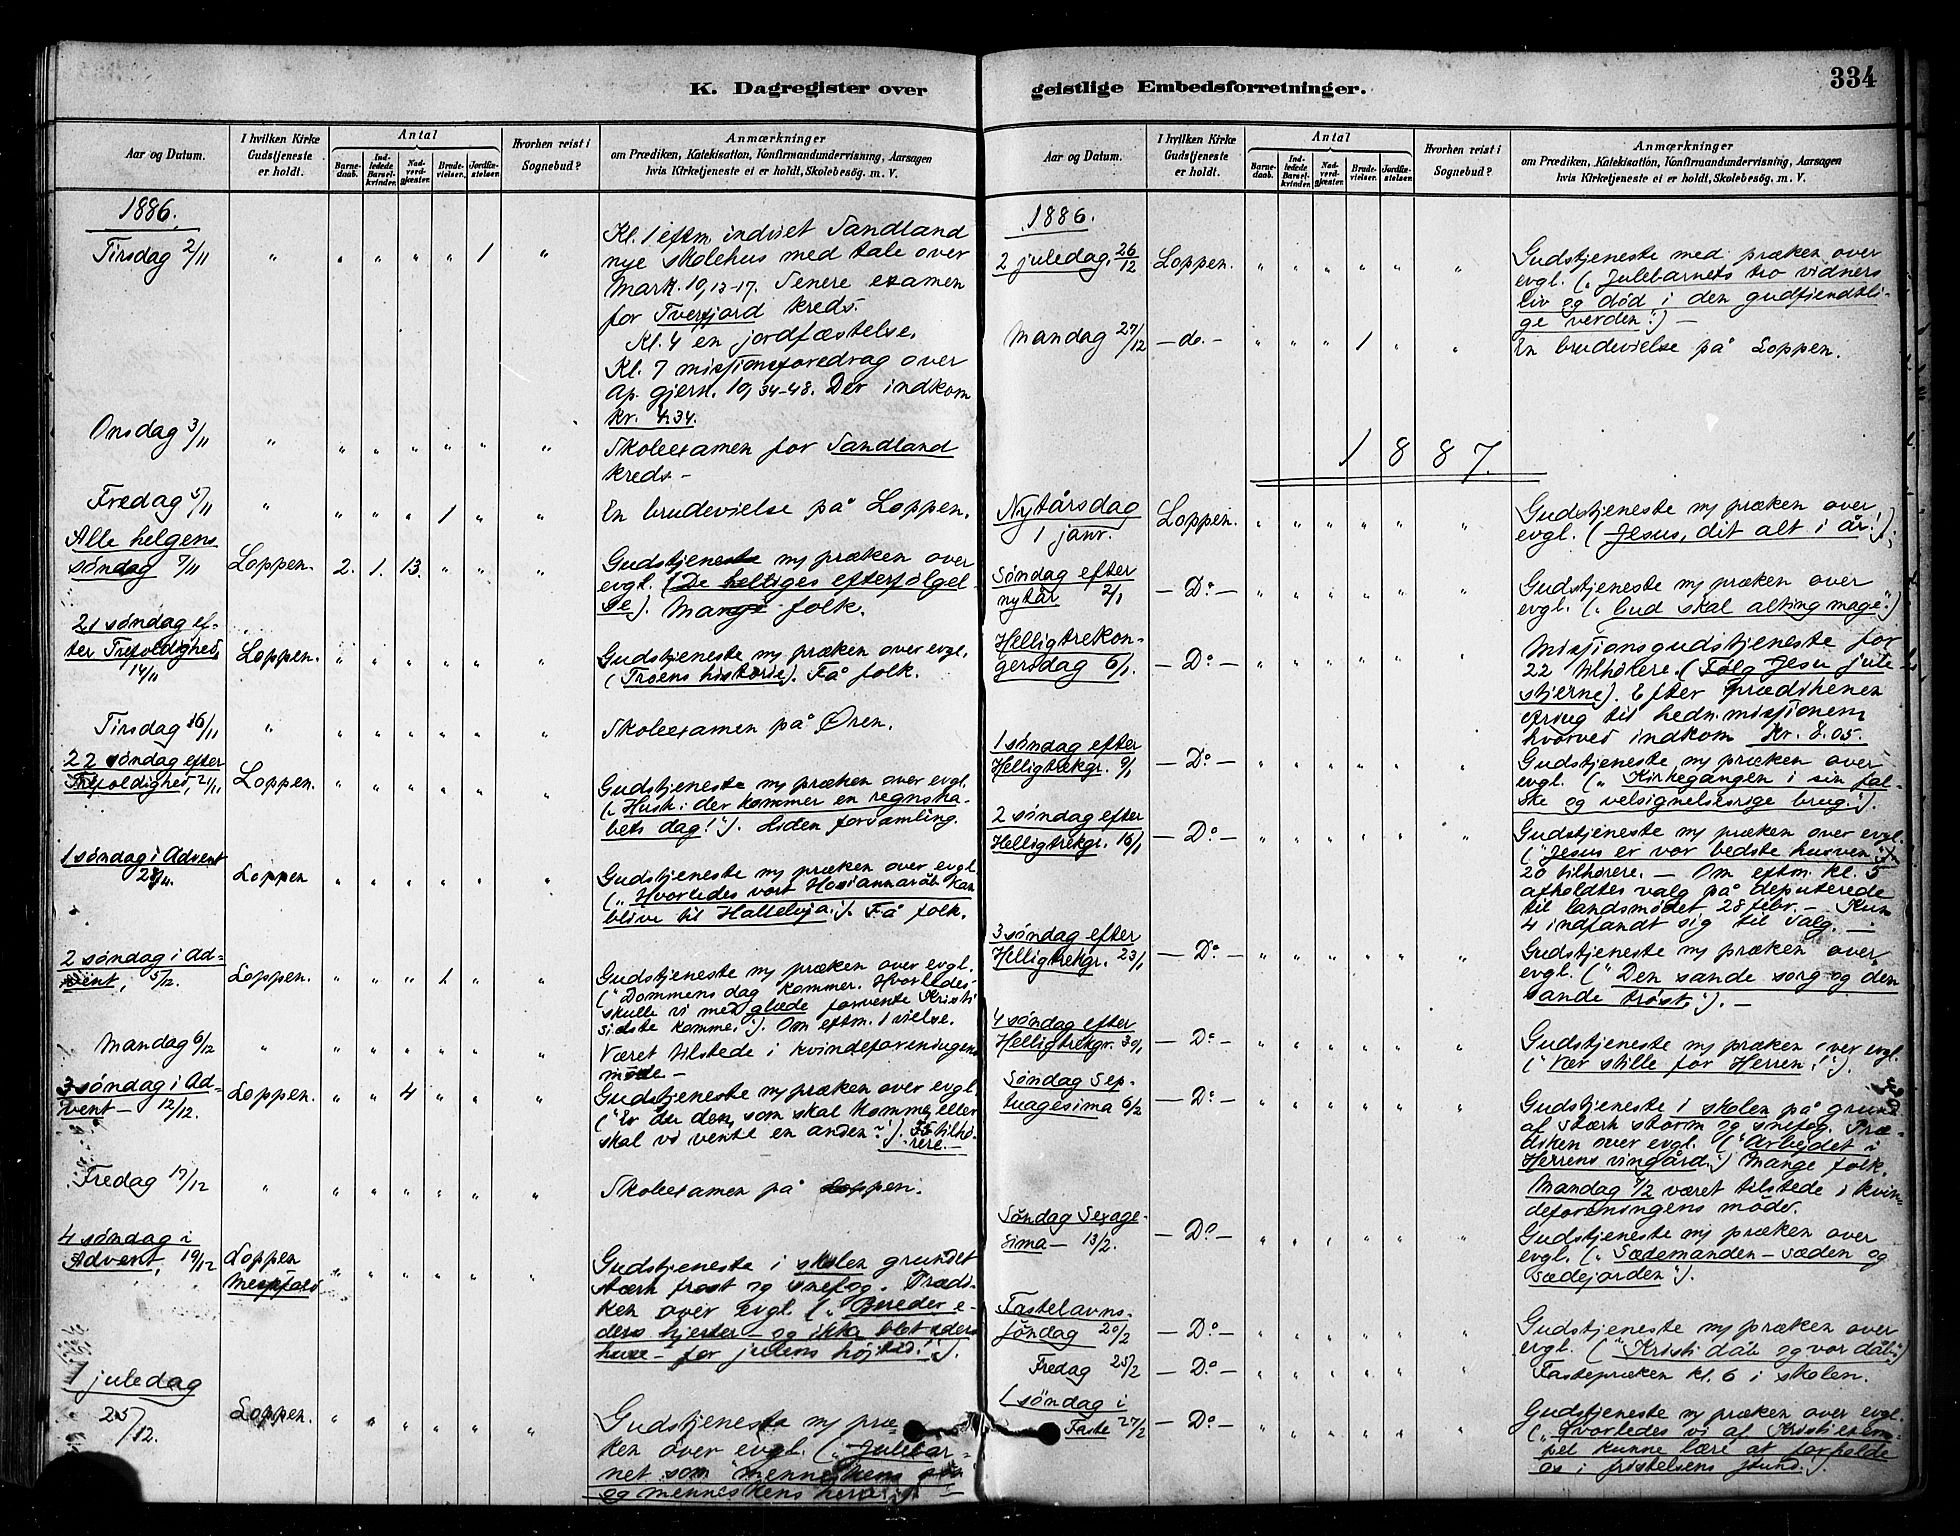 334
K. Dagregister over geistlige Embedsforretninger.
Aar og Datum.
I hvilken Kirke Gudstjeneste er holdt.
Antal
Barnedaab.
Indledede Barselkvinder.
Nadverdgjæster.
Brudevielser.
Jordfæstelser.
Hvorhen reist i Sognebud?
Anmærkninger
om Prædiken, Katekisation, Konfirmandundervisning, Aarsagen
hvis Kirketjeneste ei er holdt, Skolebesøg. m. V.
1886.
Tirsdag 2/11 " " " " " 1 "
Kl. 1 eftm. indviet Sandland
nye skolehus med tale over
Mark. 10, 13-17. Senere examen
for Tverfjord kreds.
Kl. 4 en jordfæstelse.
Kl. 7 missjonsforedrag over
Ap. gjern. 10, 34-48. Der indkom
kr. 4.34.
Onsdag 3/11 " " " " " " "
Skoleexamen for Sandland
kreds -
Fredag 5/11 " " " " 1 " "
En brudevielse på Loppen.
Alle helgens
søndag 7/11 Loppen. 2. 1. 13. " " "
Gudstjeneste m/ præken over
evgl. (De helliges efterfølgel-
se). Mange folk.
21 søndag ef-
ter Trefoldighed,
14/11 Loppen. " " " " " "
Gudstjeneste m/ præken over evgl.
(Troens historie). Få folk.
Tirsdag 16/11 " " " " " " "
Skoleexamen på Øren.
22 søndag efter
Trefoldighed, 21/11 Loppen. " " " " " "
Gudstjeneste m/ præken over evgl.
("Husk: der kommer en regnska-
bets dag!"). Liden forsamling.
1 søndag i Advent
28/11. Loppen " " " " " "
Gudstjeneste m/ præken over evgl.
("Hvorledes vort Hosiannaråb kan
blive til Halleluja."). Få folk.
2 søndag i Ad-
vent, 5/12. Loppen. " " " 1 " "
Gudstjeneste m/ præken over evgl.
("Dommens dag kommer. Hvorledes
skulle vi med glæde forvente Kristi
sidste komme."). Om eftm. 1 vielse.
Mandag 6/12 " " " " " " "
Været tilstede i kvindeforeningens
møde -
3 søndag i Ad-
vent - 12/12. Loppen. " " 4 " " "
Gudstjeneste m/ præken over evgl.
("Er du den, som skal komme, eller
skal vi vente en anden?"). 35 tilhø-
rere. -
Fredag 17/12 " " " " " " "
Skoleexamen på Loppen.
4 søndag i
Advent, 19/12 Loppen
Messefald " " " " " "
Gudstjeneste i skolen grundet
stærk frost og snefog. Prædi-
ken over evgl. ("Bereder e-
ders hjerter - og ikke blot eders
huse - for julens højtid!").
1 juledag
25/12. Loppen. " " " " " "
Gudstjeneste m/ præ-
ken over evgl. ("Julebar-
net som menneskens søn
og menneskens herre").
1886.
2 juledag, 26/12 Loppen. " " " " " "
Gudstjeneste med præken over
evgl. ("Julebarnets tro vidners
liv og død i den gudfjendtli-
ge verden".) -
Mandag 27/12 - do. - " " " 1 " "
En brudevielse på Loppen.
1887.
Nytårsdag
1 janr. Loppen. " " " " " "
Gudstjeneste m/ præken over
evgl. (Jesus, dit alt i år!);
Søndag efter
nytår 2/1 - Do - " " " " " "
Gudstjeneste m/ præken over
evgl. ("Gud skal alting mage".)
Helligtrekon-
gersdag 6/1. - Do - " " " " " "
Missjonsgudstjeneste for
22 tilhørere. (Følg Jesu jule-
stjerne). Efter prædikenen
ofring til hedn. missjonen,
hvorved indkom Kr. 8.05.
1 søndag efter
Helligtrekgr. 9/1 - Do - " " " " " "
Gudstjeneste m/ præken over
evgl. ("Kirkegangen i sin fal-
ske og velsignelsesrige brug.").
2 søndag efter
Helligtrekgr. 16/1 - Do - " " " " " "
Gudstjeneste m/ præken over evgl.
("Jesus er vor bedste husven").
20 tilhørere. - Om eftm. kl. 5
afholdtes valg på deputerede
til landsmødet 28 febr. - Kun
4 indfandt sig til valg. -
3 søndag efter
Helligtrekgr. 23/1 - Do - " " " " " "
Gudstjeneste m/ præken over
evgl. ("Den sande sorg og den
sande trøst."). -
4 søndag efter
Helligtrekgr. 30/1 - Do - " " " " " "
Gudstjeneste m/ præken over evgl.
("Vær stille for Herren!").
Søndag Sep-
tuagesima 6/2 - Do - " " " " " "
Gudstjeneste i skolen på grund
af stærk storm og snefog. Præ-
diken over evgl. ("Arbejdet i
Herrens vingård.") Mange folk.
Mandag 7/2 været tilstede i kvin-
deforeningens møde.
Søndag Sexage-
sima - 13/2. - Do - " " " " " "
Gudstjeneste m/ præken over
evgl. ("Sædemanden - sæden og
sædejorden").
Fastelavns-
søndag 20/2 - Do - " " " " " "
Gudstjeneste m/ præken over
evgl. ("Kristi dåb og vor dåb")
Fredag 25/2 - Do - " " " " " "
Fastepræken kl. 6 i skolen.
1 søndag i
Faste 27/2 - Do - " " " " " "
Gudstjeneste m/ præken over evgl.
("Hvorledes vi af Kristi exem-
pel kunne lære at forholde
os i fristelsens stund.").